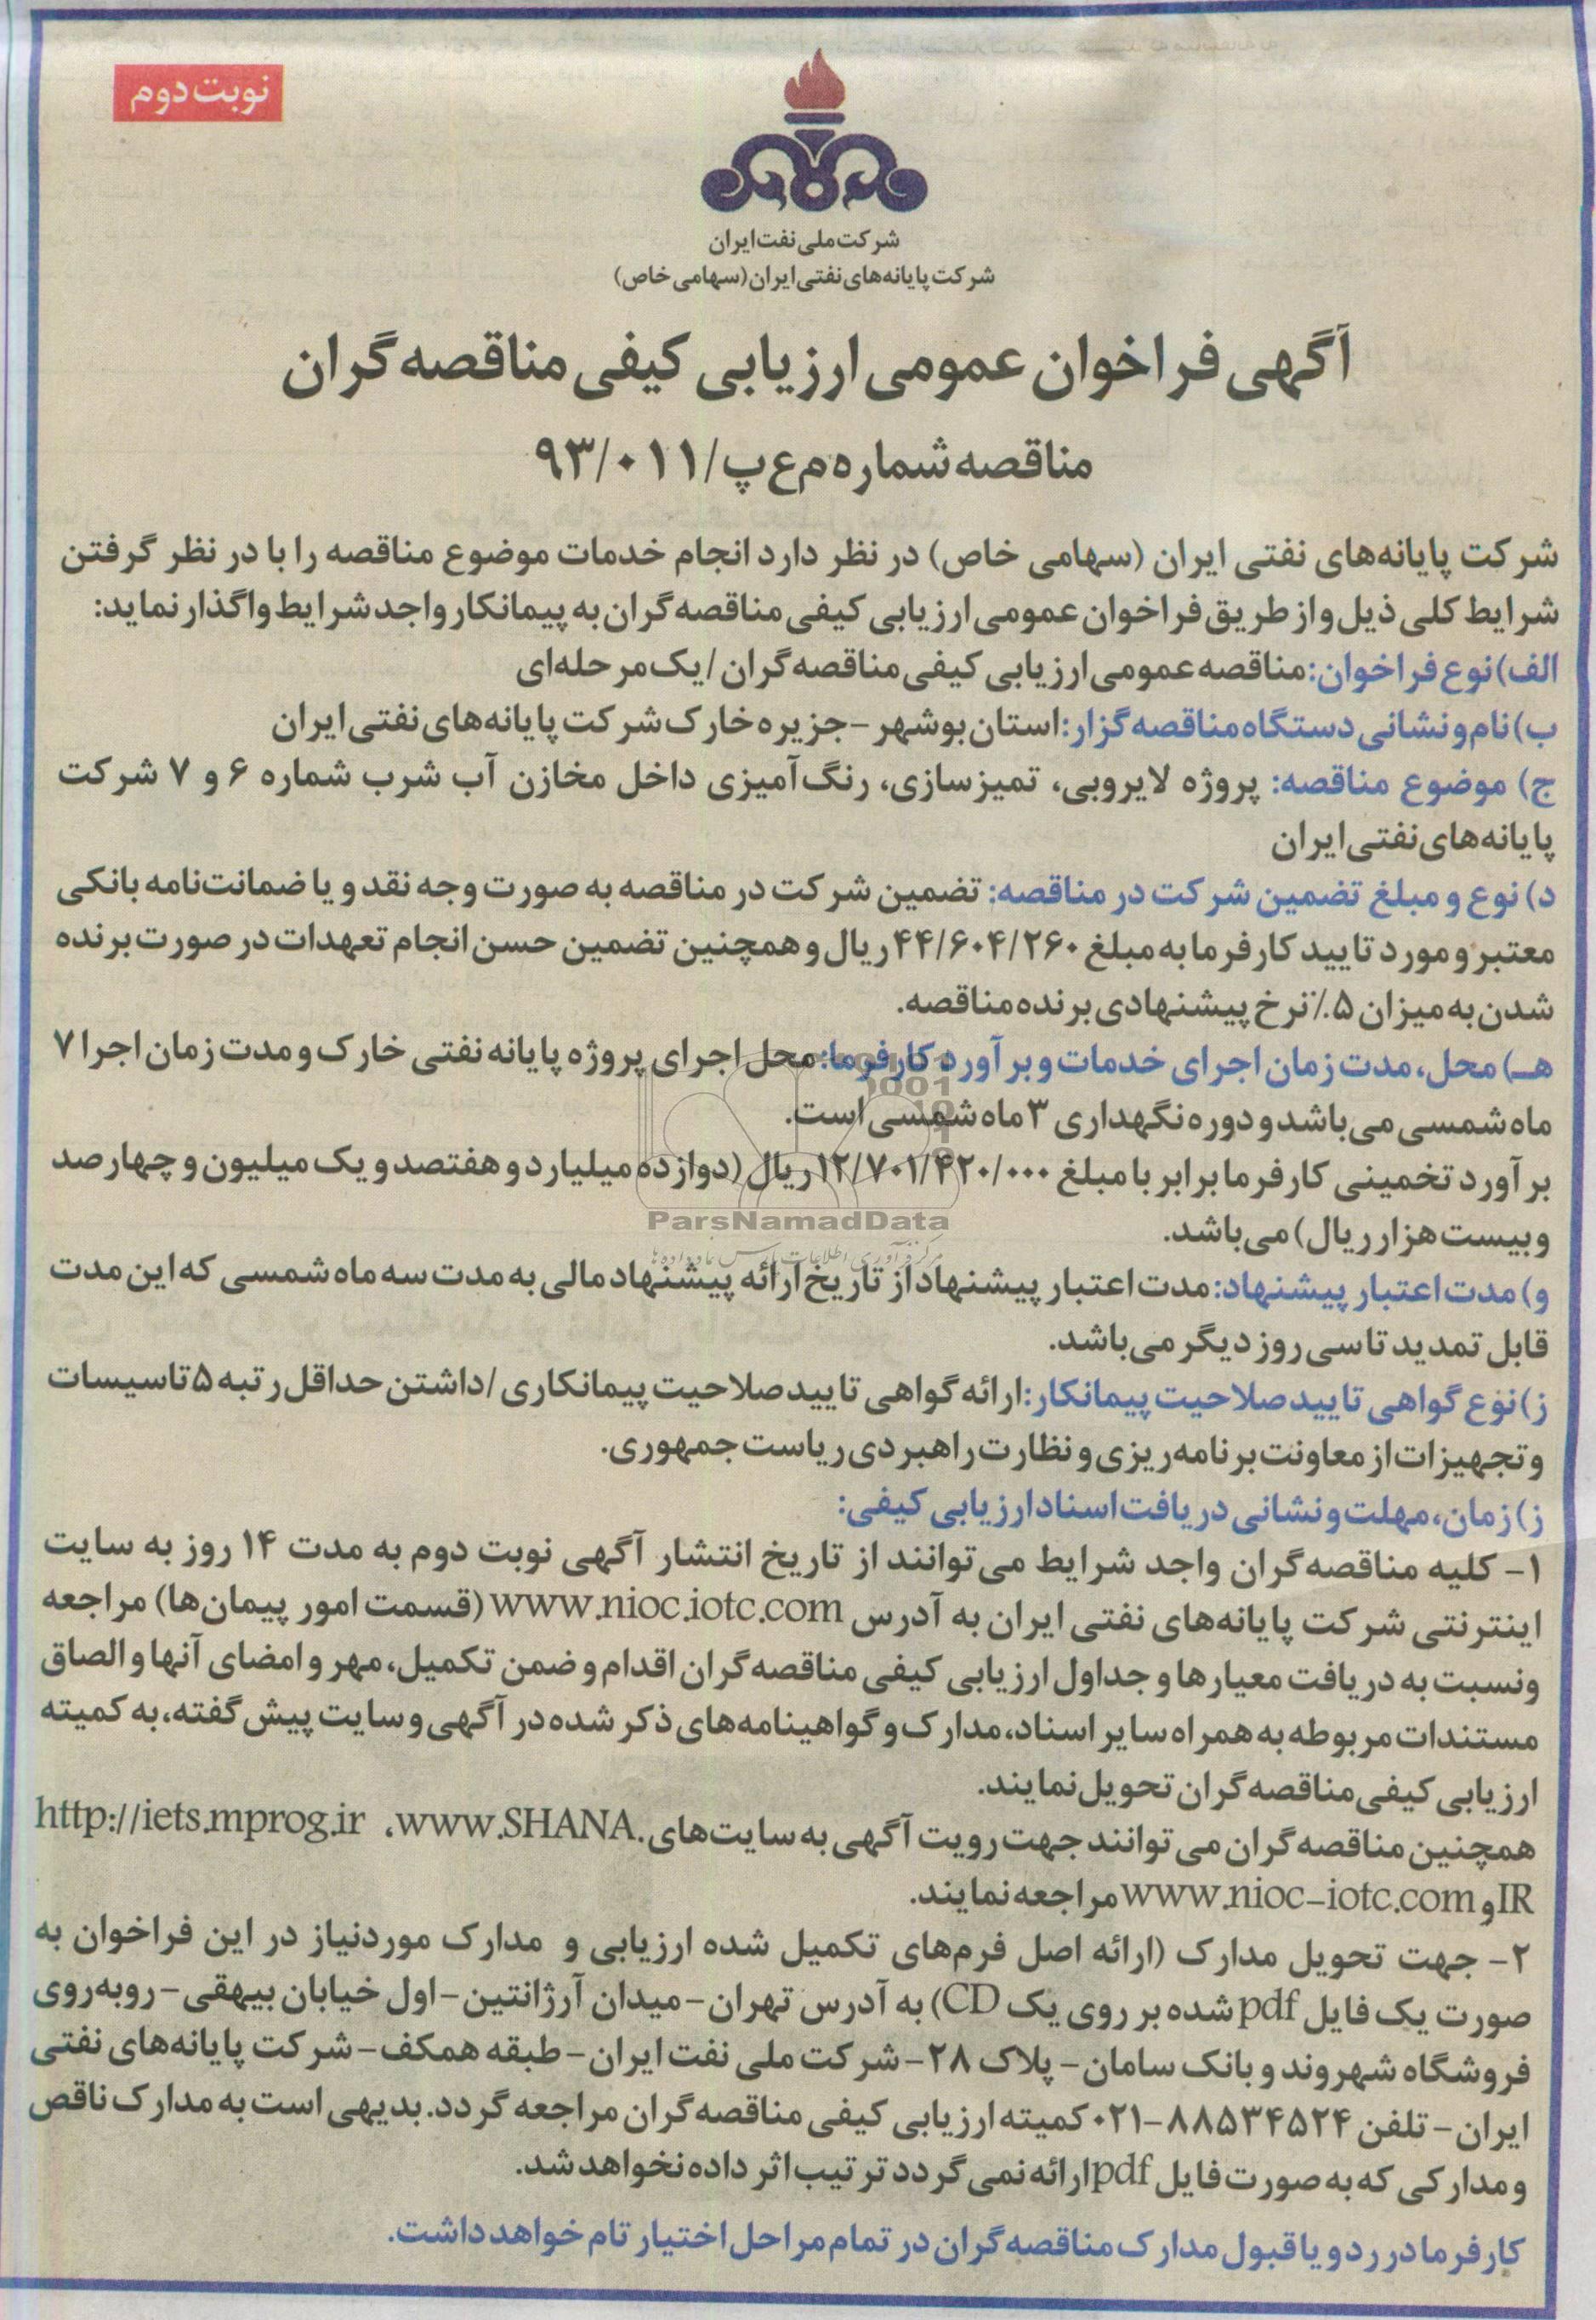 نوبت دوم
شرکت ملی نفت ایران
شرکت پایانه‌های نفتی ایران (سهامی خاص)
آگهی فراخوان عمومی ارزیابی کیفی مناقصه‌گران
مناقصه شماره م ع پ/۹۳/۰۱۱
شرکت پایانه‌های نفتی ایران (سهامی خاص) در نظر دارد انجام خدمات موضوع مناقصه را با در نظر گرفتن
شرایط کلی ذیل و از طریق فراخوان عمومی ارزیابی کیفی مناقصه‌گران به پیمانکار واجد شرایط واگذار نماید:
الف) نوع فراخوان: مناقصه عمومی ارزیابی کیفی مناقصه‌گران / یک مرحله‌ای
ب) نام و نشانی دستگاه مناقصه‌گزار: استان بوشهر - جزیره خارک شرکت پایانه‌های نفتی ایران
ج) موضوع مناقصه: پروژه لایروبی، تمیزسازی، رنگ‌آمیزی داخل مخازن آب شرب شماره ۶ و ۷ شرکت
پایانه‌های نفتی ایران
د) نوع و مبلغ تضمین شرکت در مناقصه: تضمین شرکت در مناقصه به صورت وجه نقد و یا ضمانت‌نامه بانکی
معتبر و مورد تایید کارفرما به مبلغ ۴۴/۶۰۴/۲۶۰ ریال و همچنین تضمین حسن انجام تعهدات در صورت برنده
شدن به میزان ۵٪ نرخ پیشنهادی برنده مناقصه.
هـ) محل، مدت زمان اجرای خدمات و برآورد کارفرما: محل اجرای پروژه پایانه نفتی خارک و مدت زمان اجرا ۷
ماه شمسی می‌باشد و دوره نگهداری ۳ ماه شمسی است.
برآورد تخمینی کارفرما برابر با مبلغ ۱۲/۷۰۱/۴۲۰/۰۰۰ ریال (دوازده میلیارد و هفتصد و یک میلیون و چهارصد
ParsNamadData
و بیست هزار ریال) می‌باشد.
مرکز فرآوری اطلاعات پارس نماد داده‌ها
و) مدت اعتبار پیشنهاد: مدت اعتبار پیشنهاد از تاریخ ارائه پیشنهاد مالی به مدت سه ماه شمسی که این مدت
قابل تمدید تا سی روز دیگر می‌باشد.
ز) نوع گواهی تایید صلاحیت پیمانکار: ارائه گواهی تایید صلاحیت پیمانکاری / داشتن حداقل رتبه ۵ تاسیسات
و تجهیزات از معاونت برنامه‌ریزی و نظارت راهبردی ریاست جمهوری.
ز) زمان، مهلت و نشانی دریافت اسناد ارزیابی کیفی:
۱- کلیه مناقصه‌گران واجد شرایط می‌توانند از تاریخ انتشار آگهی نوبت دوم به مدت ۱۴ روز به سایت
اینترنتی شرکت پایانه‌های نفتی ایران به آدرس www.nioc.iotc.com (قسمت امور پیمان‌ها) مراجعه
ونسبت به دریافت معیارها و جداول ارزیابی کیفی مناقصه‌گران اقدام و ضمن تکمیل، مهر و امضای آنها و الصاق
مستندات مربوطه به همراه سایر اسناد، مدارک و گواهینامه‌های ذکر شده در آگهی و سایت پیش گفته، به کمیته
ارزیابی کیفی مناقصه‌گران تحویل نمایند.
همچنین مناقصه‌گران می‌توانند جهت رویت آگهی به سایت‌های www.SHANA. ، http://iets.mprog.ir
IR و www.nioc-iotc.com مراجعه نمایند.
۲- جهت تحویل مدارک (ارائه اصل فرم‌های تکمیل شده ارزیابی و مدارک موردنیاز در این فراخوان به
صورت یک فایل pdf شده بر روی یک CD) به آدرس تهران- میدان آرژانتین- اول خیابان بیهقی- روبه‌روی
فروشگاه شهروند و بانک سامان- پلاک ۲۸- شرکت ملی نفت ایران- طبقه همکف- شرکت پایانه‌های نفتی
ایران- تلفن ۸۸۵۳۴۵۲۴-۰۲۱ کمیته ارزیابی کیفی مناقصه‌گران مراجعه گردد. بدیهی است به مدارک ناقص
و مدارکی که به صورت فایل pdf ارائه نمی‌گردد ترتیب اثر داده نخواهد شد.
کارفرما در رد و یا قبول مدارک مناقصه‌گران در تمام مراحل اختیار تام خواهد داشت.